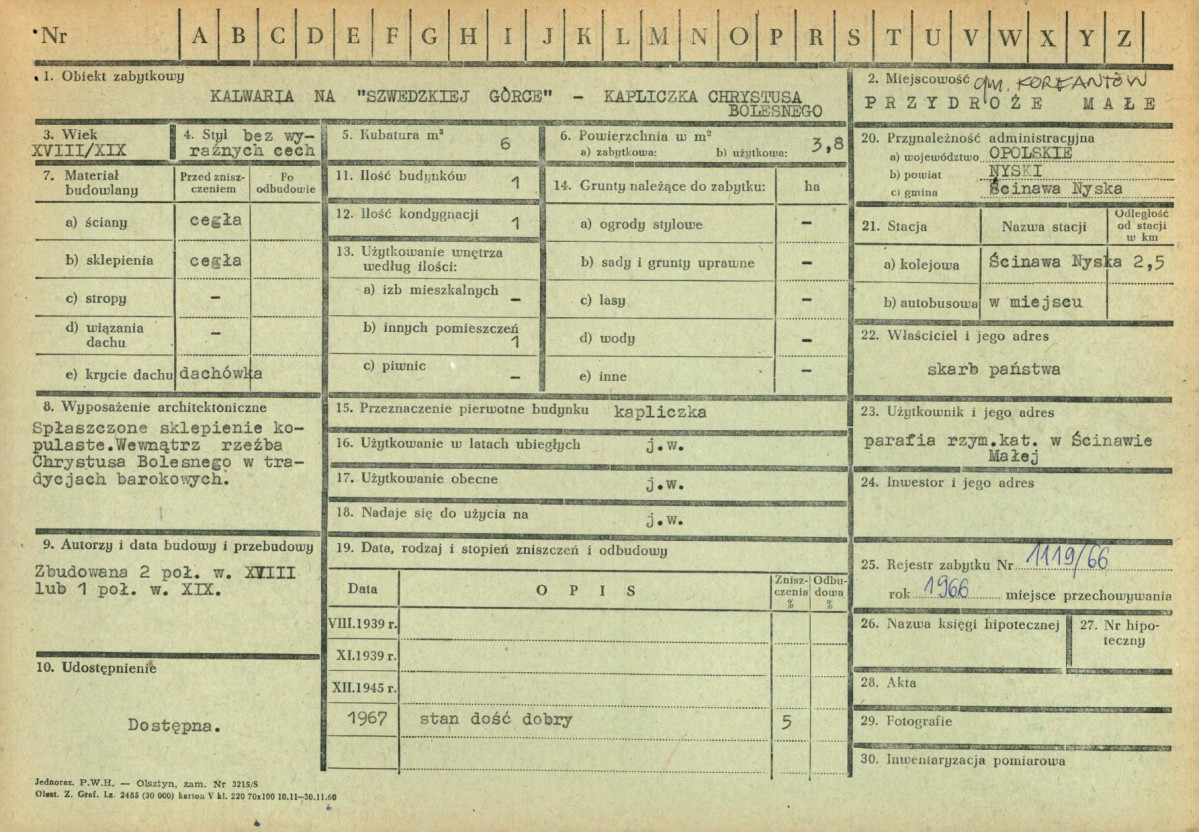 Nr A B C D E F G H I J K L M N O P R S T U V W X Y Z
1. Obiekt zabytkowy
KALWARIA NA "SZWEDZKIEJ GÓRCE" - KAPLICZKA CHRYSTUSA
BOLESNEGO
2. Miejscowość gm. KORFANTÓW
PRZYDROŻE MAŁE
3. Wiek
XVIII/XIX
4. Styl bez wy-
raźnych cech
5. Kubatura m³
6
6. Powierzchnia w m²
a) zabytkowa: b) użytkowa: 3,8
7. Materiał
budowlany
Przed znisz-
czeniem
Po
odbudowie
a) ściany cegła
b) sklepienia cegła
c) stropy -
d) wiązania
dachu -
e) krycie dachu dachówka
8. Wyposażenie architektoniczne
Spłaszczone sklepienie ko-
pulaste.Wewnątrz rzeźba
Chrystusa Bolesnego w tra-
dycjach barokowych.
9. Autorzy i data budowy i przebudowy
Zbudowana 2 poł. w. XVIII
lub 1 poł. w. XIX.
10. Udostępnienie
Dostępna.
11. Ilość budynków 1
12. Ilość kondygnacji 1
13. Użytkowanie wnętrza
według ilości:
a) izb mieszkalnych -
b) innych pomieszczeń
1
c) piwnic -
14. Grunty należące do zabytku: ha
a) ogrody stylowe -
b) sady i grunty uprawne -
c) lasy -
d) wody -
e) inne -
15. Przeznaczenie pierwotne budynku kapliczka
16. Użytkowanie w latach ubiegłych j.w.
17. Użytkowanie obecne j.w.
18. Nadaje się do użycia na j.w.
19. Data, rodzaj i stopień zniszczeń i odbudowy
Data OPIS Znisz-
czenia
% Odbu-
dowa
%
VIII.1939 r.
XI.1939 r.
XII.1945 r.
1967 stan dość dobry 5
20. Przynależność administracyjna
a) województwo OPOLSKIE
b) powiat NYSKI
c) gmina Ścinawa Nyska
21. Stacja Nazwa stacji Odległość
od stacji
w km
a) kolejowa Ścinawa Nyska 2,5
b) autobusowa w miejscu
22. Właściciel i jego adres
skarb państwa
23. Użytkownik i jego adres
parafia rzym.kat. w Ścinawie
Małej
24. Inwestor i jego adres
25. Rejestr zabytku Nr 1119/66
rok 1966 miejsce przechowywania
26. Nazwa księgi hipotecznej
27. Nr hipo-
teczny
28. Akta
29. Fotografie
30. Inwentaryzacja pomiarowa
Jednoraz. P.W.H. — Olsztyn, zam. Nr 3215/S
Olszt. Z. Graf. Lz. 2485 (30 000) karton V kl. 220 70x100 10.11—30.11.60